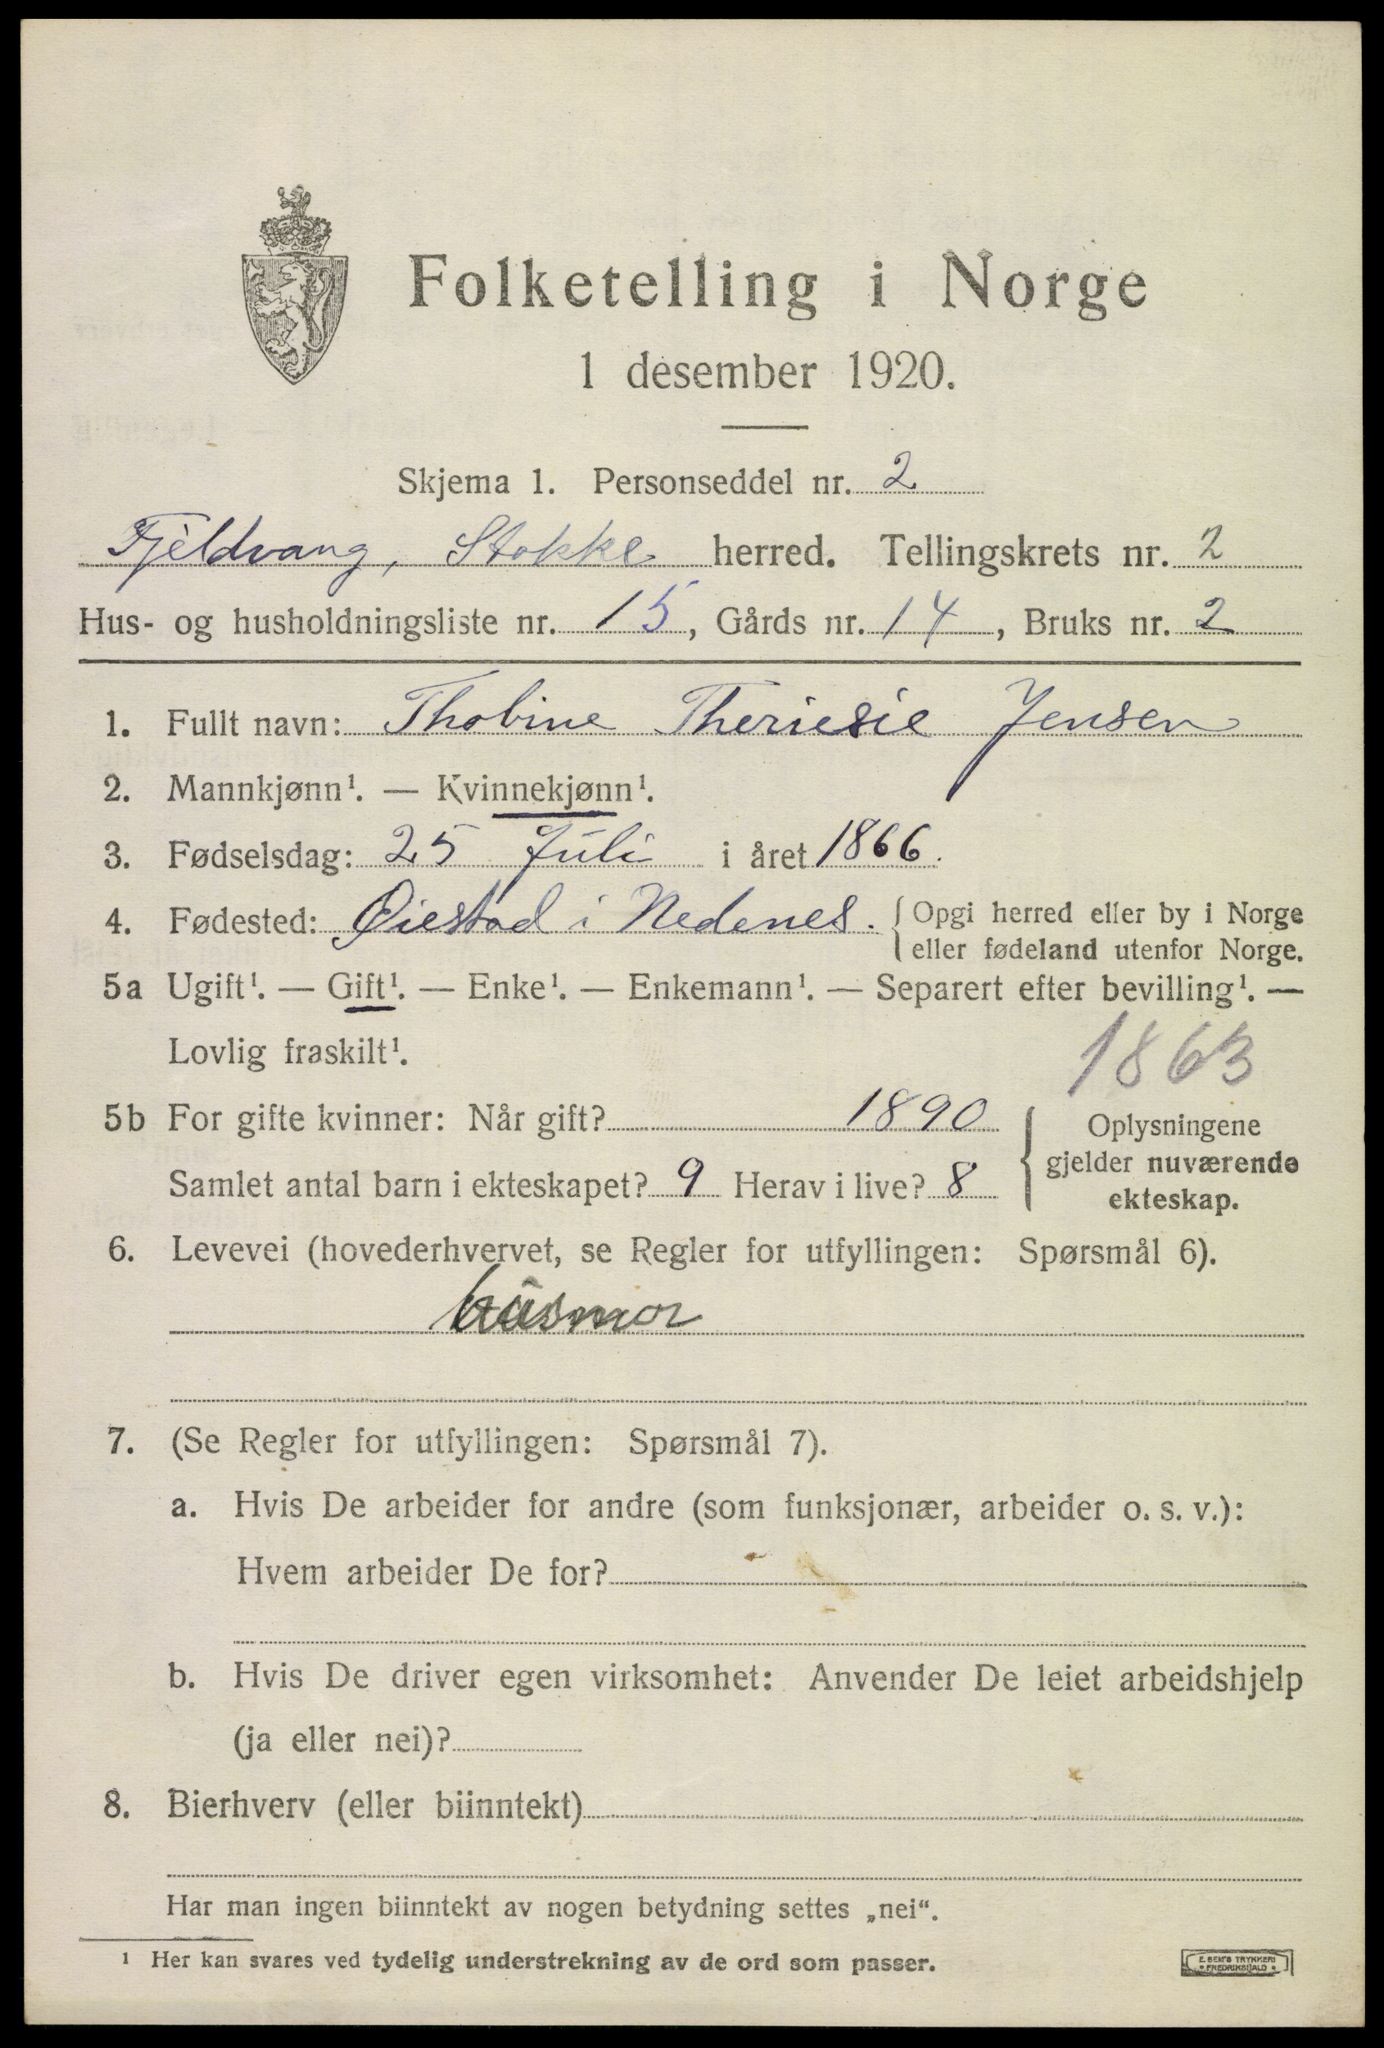 Folketelling i Norge
1 desember 1920.
Skjema 1. Personseddel nr. 2
Fjeldvang, Stokke herred. Tellingskrets nr. 2
Hus- og husholdningsliste nr. 15, Gårds nr. 14, Bruks nr. 2
1. Fullt navn: Thobine Theriesie Jensen
2. Mannkjønn¹. — Kvinnekjønn¹.
3. Fødselsdag: 25 Juli i året 1866.
4. Fødested: Øiestad i Nedenes. { Opgi herred eller by i Norge
eller fødeland utenfor Norge.
5a Ugift¹. — Gift¹. — Enke¹. — Enkemann¹. — Separert efter bevilling¹. —
Lovlig fraskilt¹.
1863
5b For gifte kvinner: Når gift? 1890
Samlet antal barn i ekteskapet? 9 Herav i live? 8
Oplysningene
gjelder nuværende
ekteskap.
6. Levevei (hovederhvervet, se Regler for utfyllingen: Spørsmål 6).
husmor
7. (Se Regler for utfyllingen: Spørsmål 7).
a. Hvis De arbeider for andre (som funksjonær, arbeider o. s. v.):
Hvem arbeider De for?
b. Hvis De driver egen virksomhet: Anvender De leiet arbeidshjelp
(ja eller nei)?
8. Bierhverv (eller biinntekt)
Har man ingen biinntekt av nogen betydning settes „nei“.
¹ Her kan svares ved tydelig understrekning av de ord som passer.
E. SEM'S TRYKKERI
FREDRIKSHALD